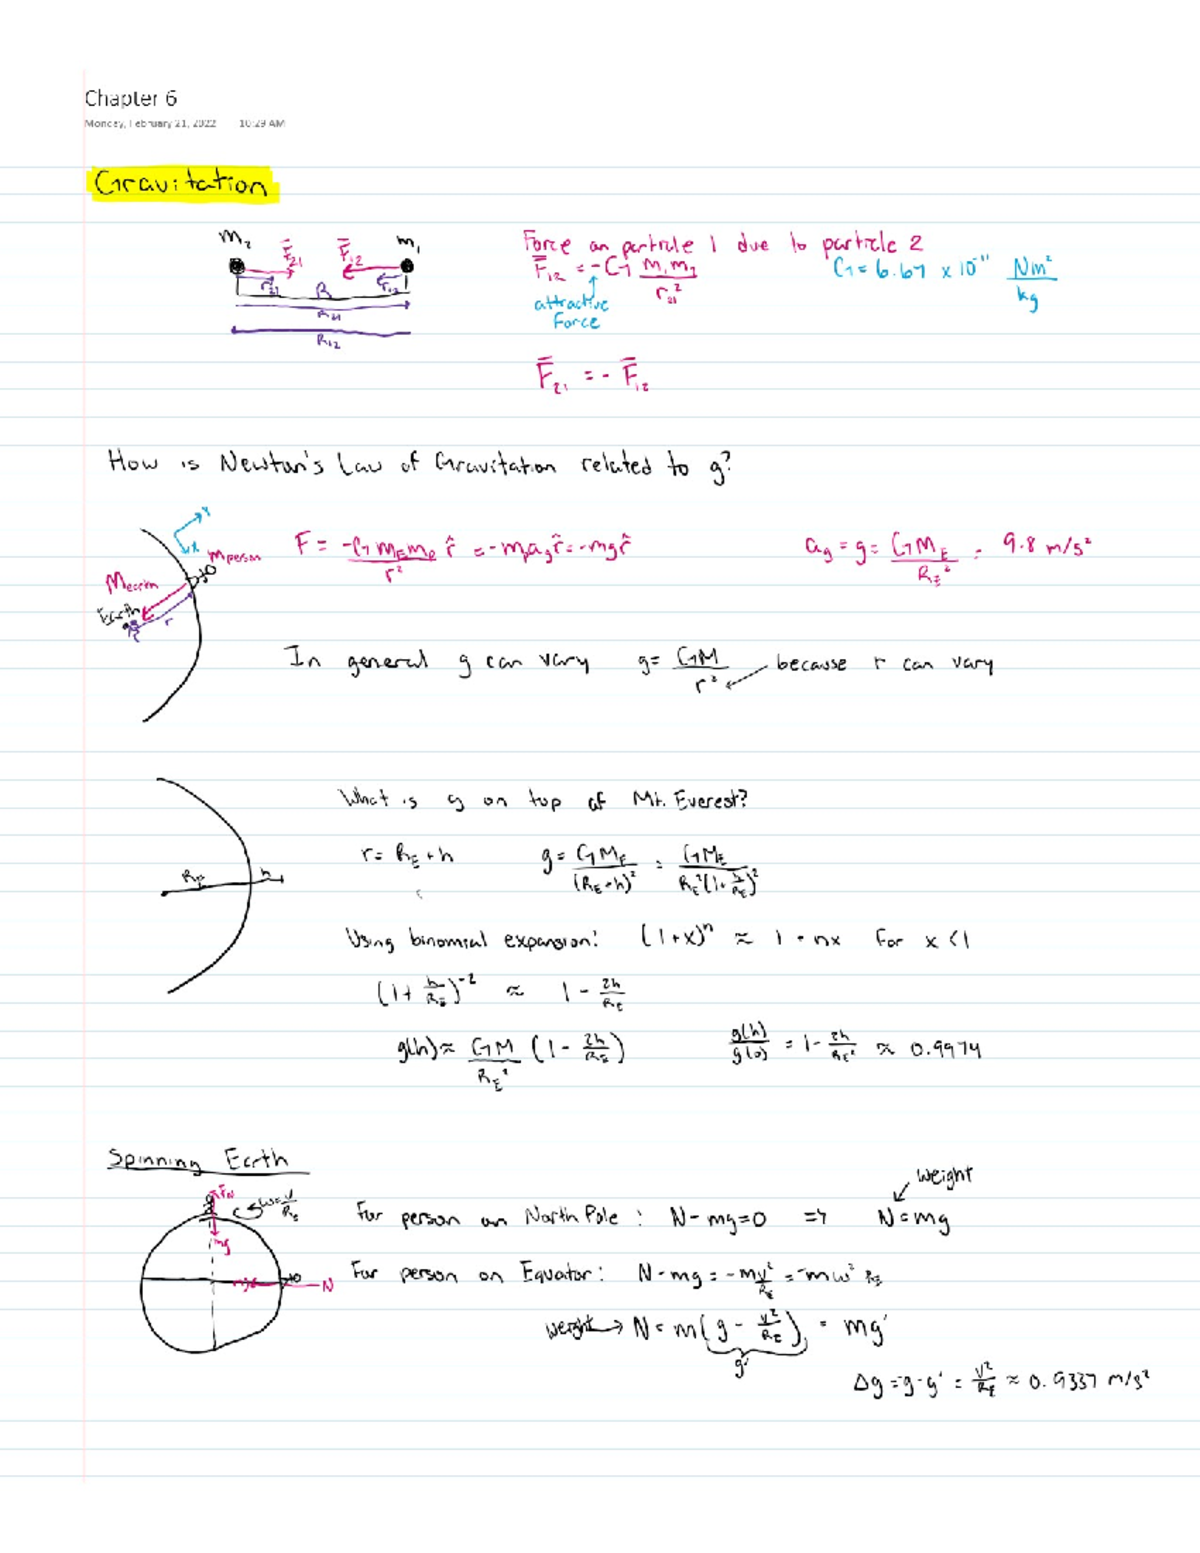 Chapter 6
Monday, February 21, 2022 10:29 AM
Gravitation
m₂ F̄₂₁ F̄₁₂ m₁
r₂₁ R r₁₂
R₂₁
R₁₂
Force on particle 1 due to particle 2
F̄₁₂ = -G m₁m₂ / r₂₁² G = 6.67 x 10⁻¹¹ Nm² / kg
attractive
Force
F̄₂₁ = - F̄₁₂
How is Newton's Law of Gravitation related to g?
x
mperson
Mearth
Earth
r
F = -GmEmP / r² r̂ = -mₚagr̂ = -mgr̂ ag = g = GME / RE² = 9.8 m/s²
In general g can vary g = GM / r² because r can vary
What is g on top of Mt. Everest?
RE h
r = RE + h g = GME / (RE + h)² = GME / RE²(1 + h/RE)²
Using binomial expansion: (1+x)ⁿ ≈ 1 + nx for x < 1
(1 + h/RE)⁻² ≈ 1 - 2h/RE
g(h) ≈ GM / RE² (1 - 2h/RE) g(h)/g(0) = 1 - 2h/RE² ≈ 0.9974
Spinning Earth
weight
FN ω = v/RE
mg
For person on North Pole : N - mg = 0 => N = mg
mg N
For person on Equator: N - mg = -mv²/RE = -mω² RE
weight → N = m(g - v²/RE) = mg'
g'
Δg = g - g' = v²/RE ≈ 0.9337 m/s²